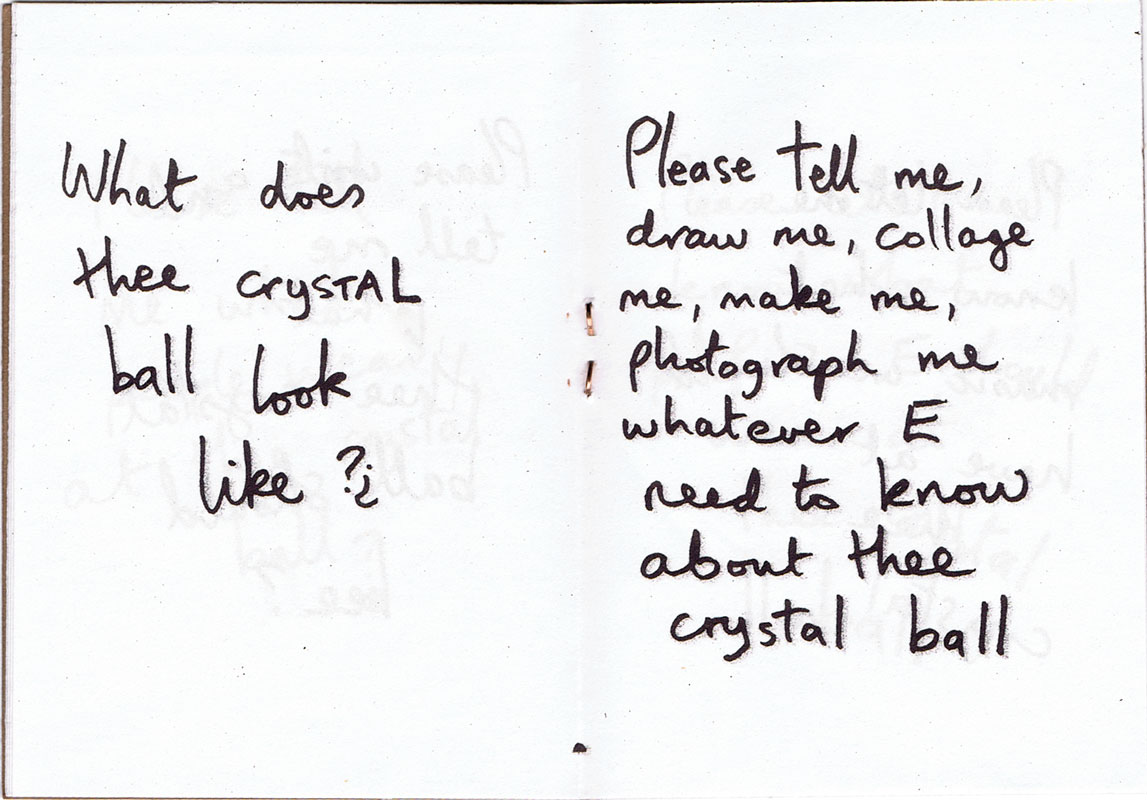 What does
thee crySTAL
ball look
like ?¿
Please tell me,
draw me, collage
me, make me,
photograph me
whatever E
need to know
about thee
crystal ball